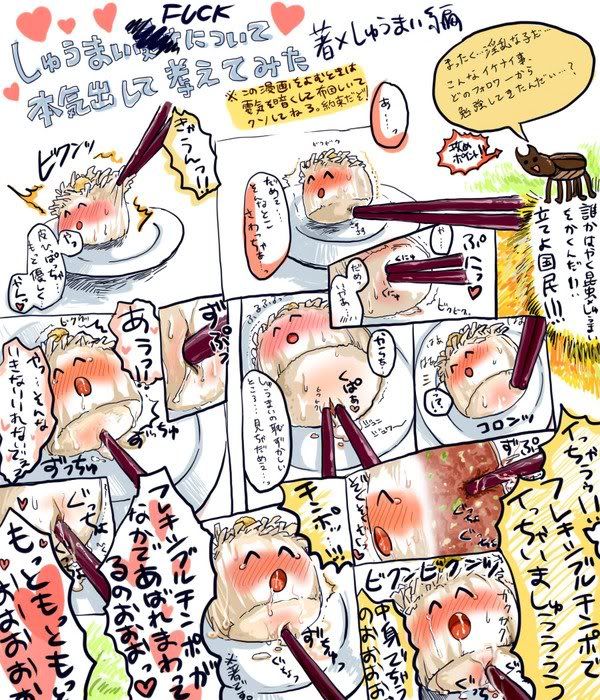 FUCK
しゅうまい
について
本気出して考えてみた
箸×しゅうまい編
※この漫画をよむときは
電気を暗くして布団しいて
クンクンしてねる。約束だぞ!
まったく…淫乱な子だ…
こんなイケナイ事、
どのフォロワーから
勉強してきたんだい…?
攻め
ポイント!!
誰かはやく昆虫じゅーまい
をかくんだ!!!
立てよ国民!!!
あ…っ
ビクンッ
きゃうんっ!!
やっ
皮ひっぱっちゃ
もっと優しく
やんっ
ビクビク
だめ…
そんなとこ
さわっちゃ…っ
ぷにっ
だめ
ビクビク
ずぷっ
あうっ!!
やっ…そんな
いきないいれないでぇ
ずっちゅ
ずっちゅ
ぷるぷる
やぁっ…
くぱぁ
しゅうまいの恥ずかしい
ところ…見ちゃだめぇ…っ
はぁ
はぁ
コロンッ
ぐっちょ
もっともっとも
おーおおおお
フレキシブルチンポが
なかであばれまわって
るのおおおっ
チンポッ…!!
ずぷ
イっちゃううぅ
フレキシブルチンポで
イっちゃいましゅうううン
ずちゅっ
※箸です
ビクンビクンッ
ガクガク
中身でちゃ
うのお
ぐちっ